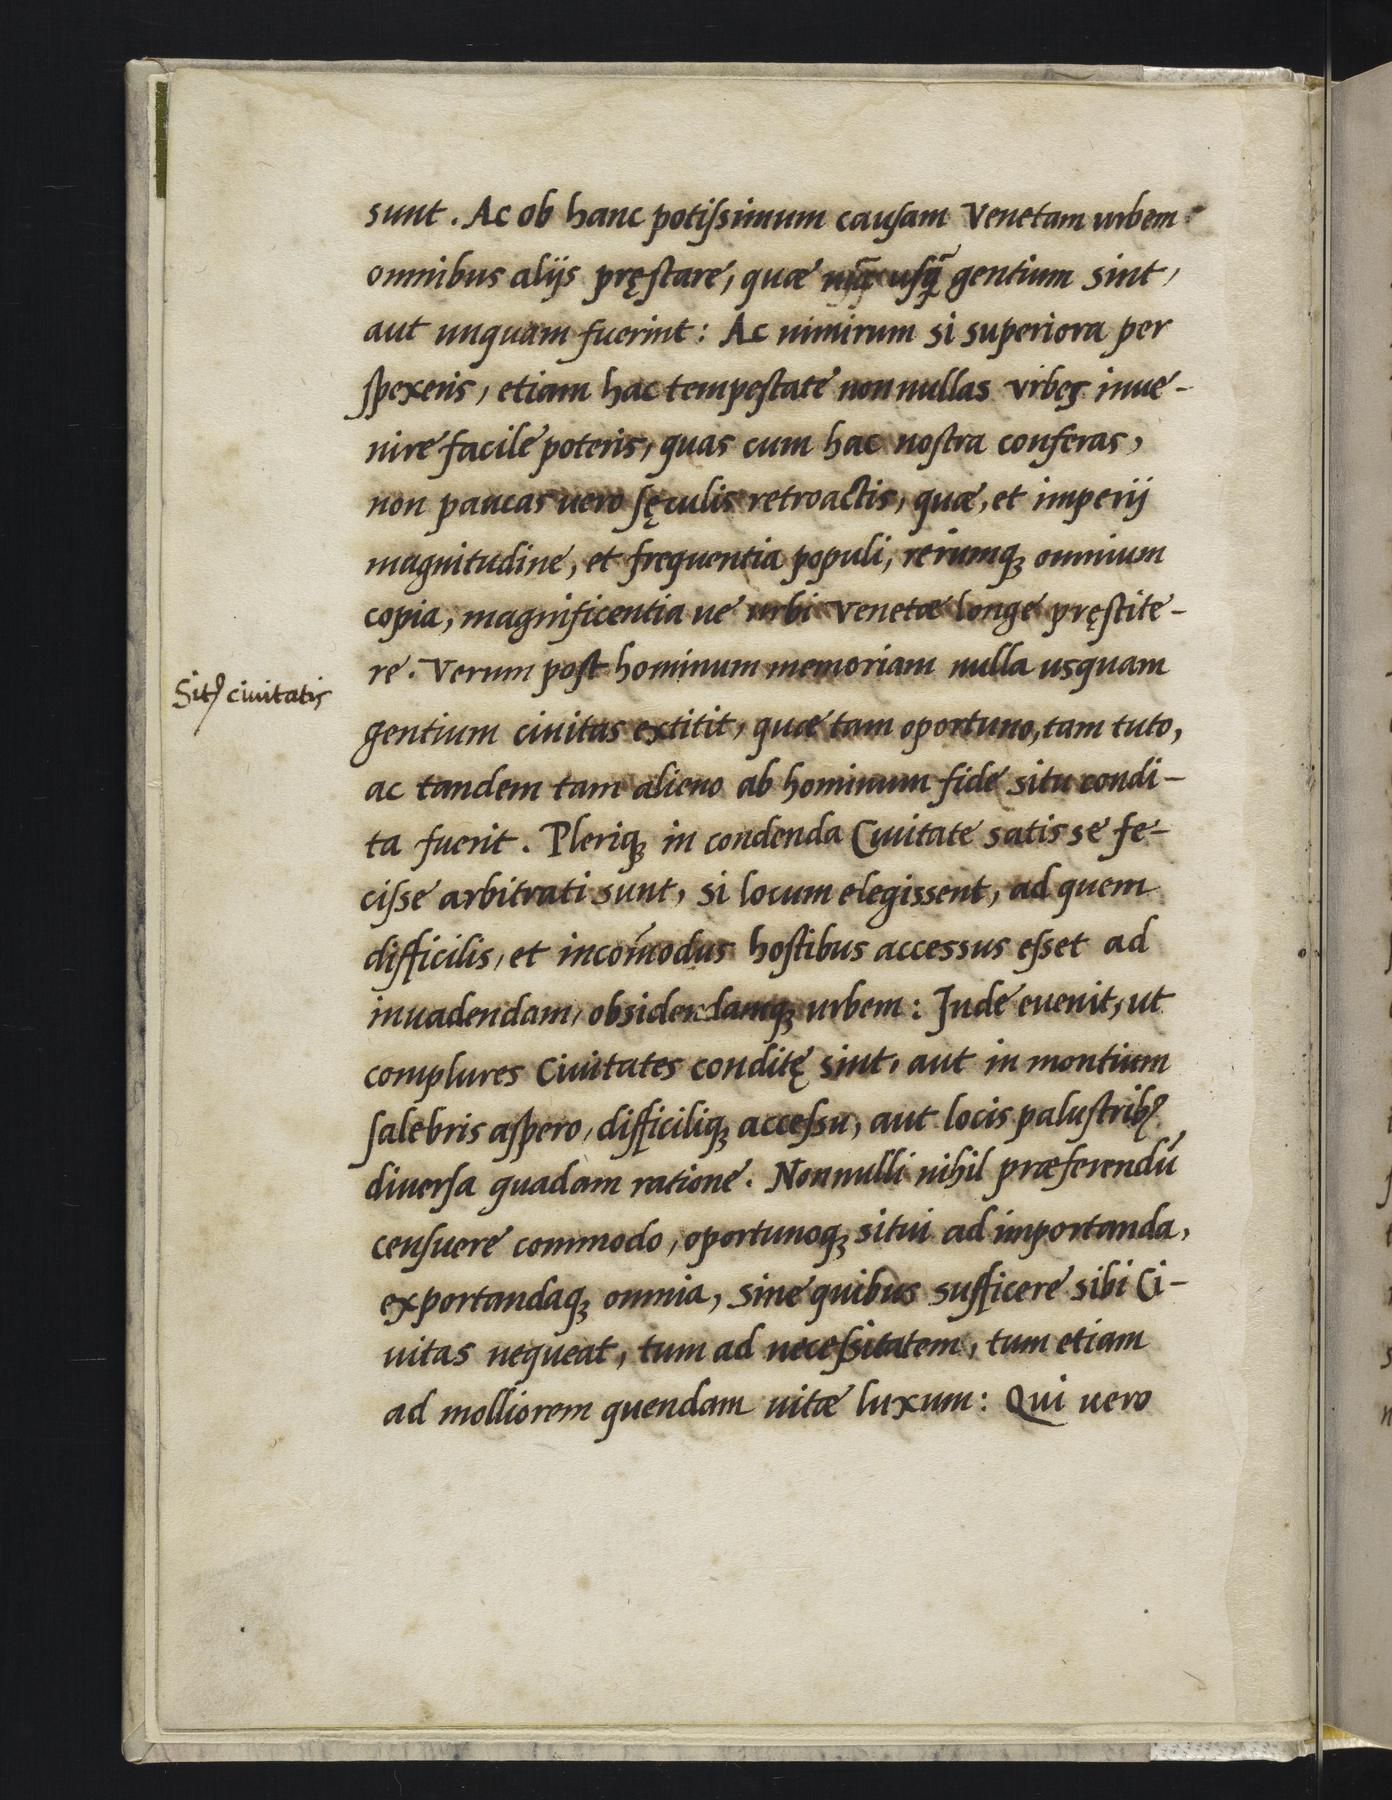 sunt. Ac ob hanc potiſsimum cauſam Venetam urbem
omnibus alijs pręſtare, quæ usq̃ gentium sint,
aut unquam fuerint: Ac nimirum si superiora per
ſpexeris, etiam hac tempeſtate non nullas vrbes inue-
nire facile poteris, quas cum hac noſtra conferas,
non paucas uero ſęculis retroactis, quæ, et imperij
magnitudine, et frequentia populi, rerumq; omnium
copia, magnificentia ue urbi Venetæ longe pręſtite-
re. Verum poſt hominum memoriam nulla usquam
Sitꝰ ciuitatis
gentium ciuitas extitit, quæ tam oportuno, tam tuto,
ac tandem tam alieno ab hominum fide situ condi-
ta fuerit. Pleriq; in condenda Ciuitate satis se fe-
ciſse arbitrati sunt, si locum elegissent, ad quem
difficilis, et incom̄odus hoſtibus accessus eſset ad
inuadendam, obsidendamq; urbem: Inde euenit, ut
complures Ciuitates conditę sint, aut in montium
ſalebris aſpero, difficiliq; acceſsu, aut locis paluſtribꝰ
diuerſa quadam ratione. Nonnulli nihil præferendū
cenſuere commodo, oportunoq; situi ad importanda,
exportandaq; omnia, sine quibus sufficere sibi Ci-
uitas nequeat, tum ad neceſsitatem, tum etiam
ad molliorem quendam uitæ luxum: Qui uero